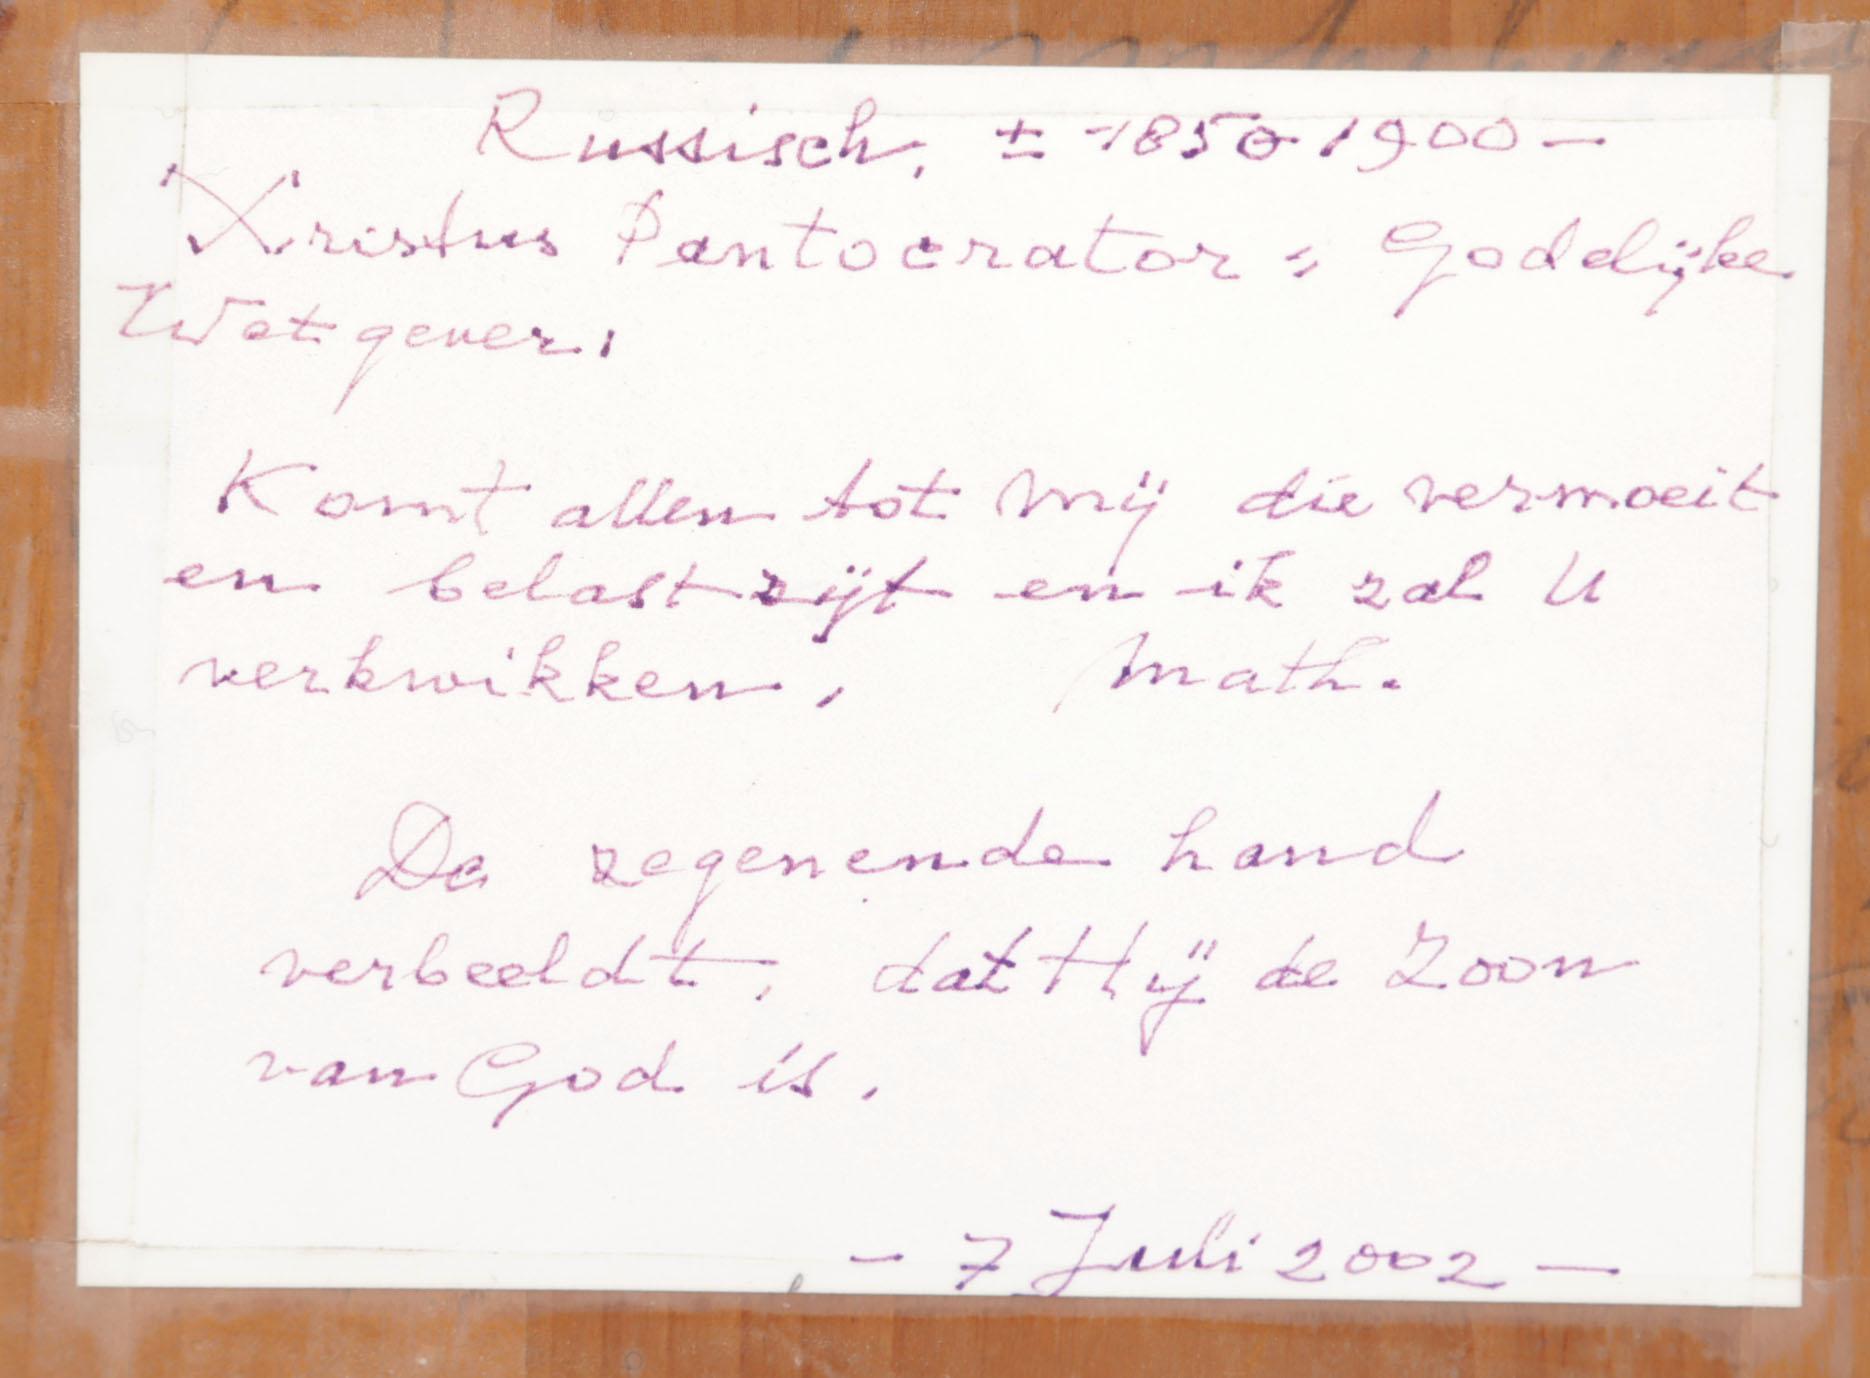 Russisch, ± 1850-1900 -
Xristus Pantocrator = Goddelijke
Wetgever.
Komt allen tot mij die vermoeit
en belast zijt en ik zal U
verkwikken. Math.
De zegenende hand
verbeeldt, dat Hij de Zoon
van God is.
- 7 Juli 2002 -